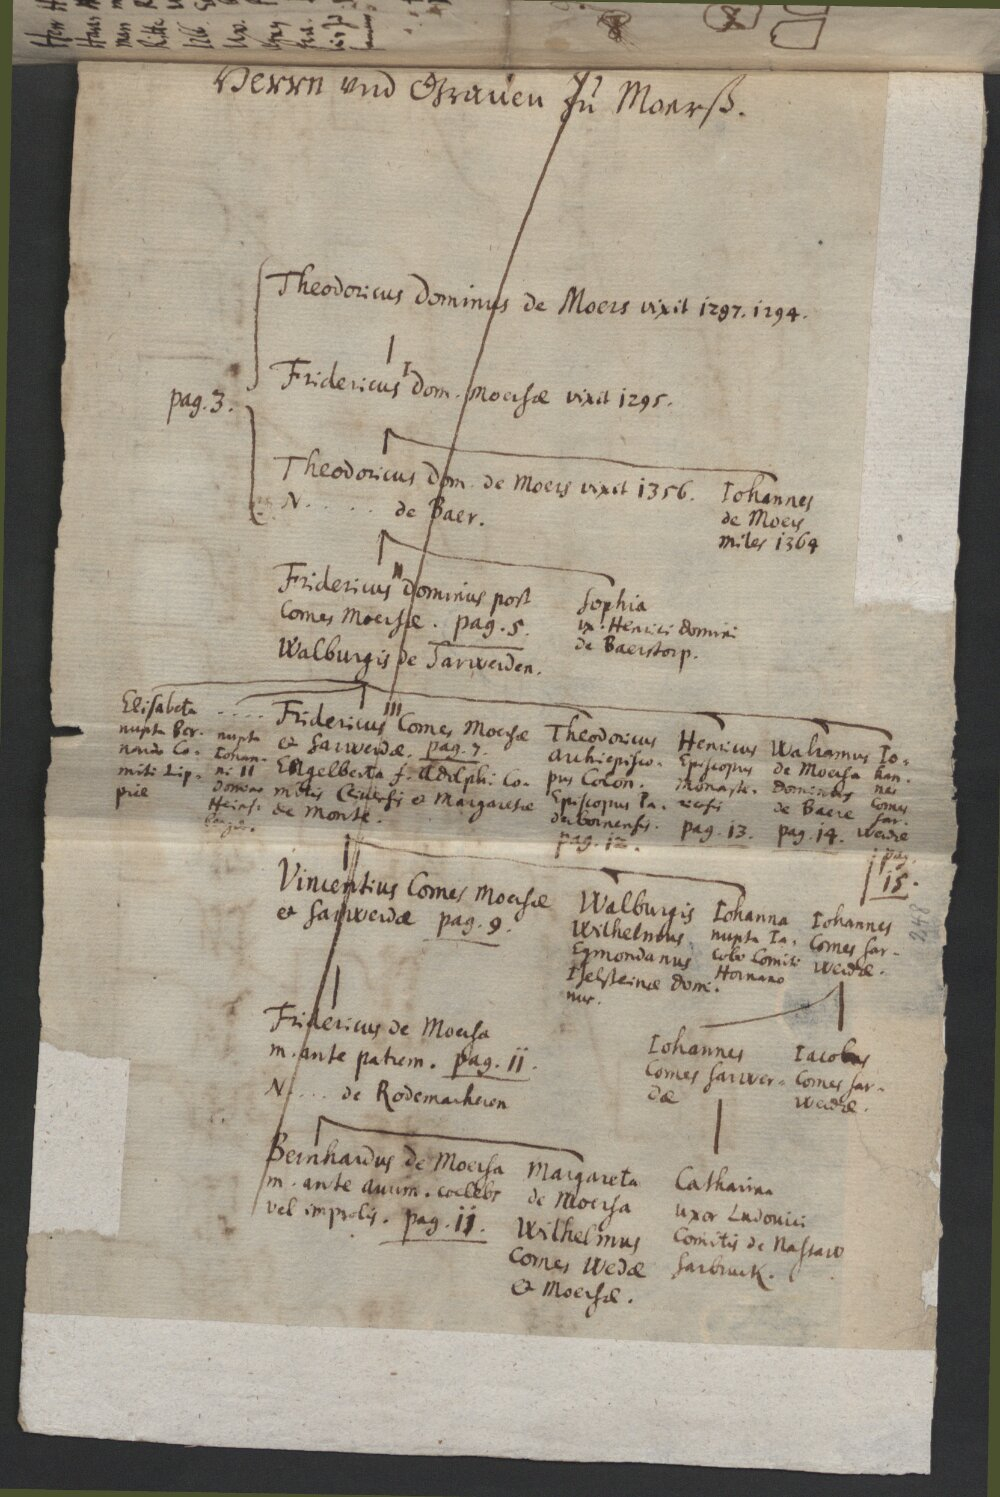 Herrn vnd Graven zu Moersß.
Theodoricus Dominus de Moers vixit 1297. 1294.
Fridericus I Dom. Moersæ vixit 1295.
pag. 3.
Theodoricus Dom. de Moers vixit 1356.
N. . . . . . de Baer.
Iohannes
de Moers
miles 1364
Fridericus II Dominus post
Comes Moersæ. pag. 5.
Walburgis de Sarwerden.
Sophia
ux. Henrici Domini
de Baerstorp.
Elisabeta
nupta Ber-
nardo Co-
miti Lip-
piæ
. . . . .
nupta
Iohan-
ni II
Domino
Heins-
Fridericus III Comes Moersæ
et Sarwerdæ. pag. 7.
Engelberta f. Adolphi Co-
mitis Clivensis et Margaretæ
de Monte.
Theodoricus
Archiepisco-
pus Colon.
Episcopus Pa-
derbornensis.
pag. 12.
Henricus
Episcopus
Monaste-
riensis
pag. 13.
Walramus
de Moersa
Dominus
de Baere
pag. 14.
Io-
han-
nes
Comes
Sar-
werdæ
pag.
15.
Vincentius Comes Moersæ
et Sarwerdæ pag. 9.
Walburgis
Wilhelmus
Egmondanus
Iselsteinæ Domi-
nus.
Iohanna
nupta Ia-
cobo Comiti
Hornano
Iohannes
Comes Sar-
werdæ.
248
Fridericus de Moersa
m. ante patrem. pag. 11.
N. . . . de Rodemacheren
Iohannes
Comes Sarwer-
dæ
Iacobus
Comes Sar-
werdæ.
Bernhardus de Moersa
m. ante avum. coelebs
vel improlis. pag. 11.
Margareta
de Moersa
Wilhelmus
Comes Wedæ
et Moersæ.
Catharina
uxor Ludovici
Comitis de Nassaw
Sarbruck.